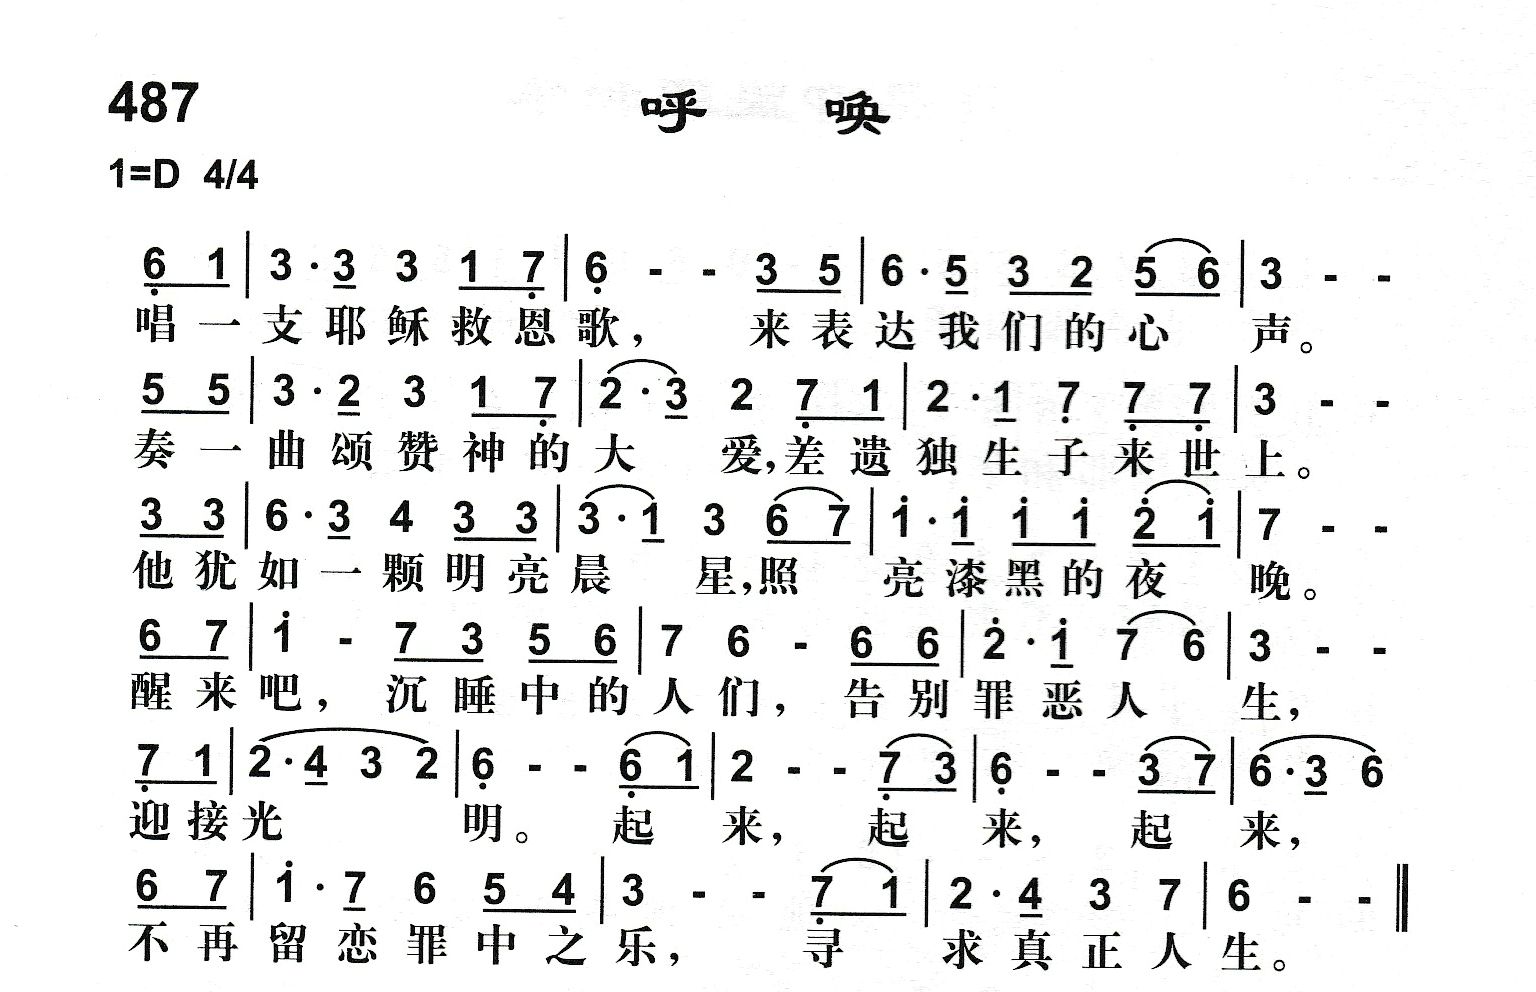 487
呼 唤
1=D 4/4
6̣ 1 | 3 · 3 3 1 7̣ | 6̣ - - 3 5 | 6 · 5 3 2 5 6 | 3 - -
唱一支耶稣救恩歌， 来表达我们的心 声。
5 5 | 3 · 2 3 1 7̣ | 2 · 3 2 7̣ 1 | 2 · 1 7̣ 7̣ 7̣ | 3 - -
奏一曲颂赞神的大 爱，差遗独生子来世上。
3 3 | 6 · 3 4 3 3 | 3 · 1 3 6 7 | 1̇ · 1̇ 1̇ 1̇ 2̇ 1̇ | 7 - -
他犹如一颗明亮晨 星，照 亮漆黑的夜 晚。
6 7 | 1̇ - 7 3 5 6 | 7 6 - 6 6 | 2̇ · 1̇ 7 6 | 3 - -
醒来吧，沉睡中的人们，告别罪恶人 生，
7̣ 1 | 2 · 4 3 2 | 6̣ - - 6̣ 1 | 2 - - 7̣ 3 | 6̣ - - 3 7 | 6 · 3 6
迎接光 明。 起 来， 起 来， 起 来，
6 7 | 1̇ · 7 6 5 4 | 3 - - 7̣ 1 | 2 · 4 3 7 | 6 - - ‖
不再留恋罪中之乐， 寻 求真正人生。